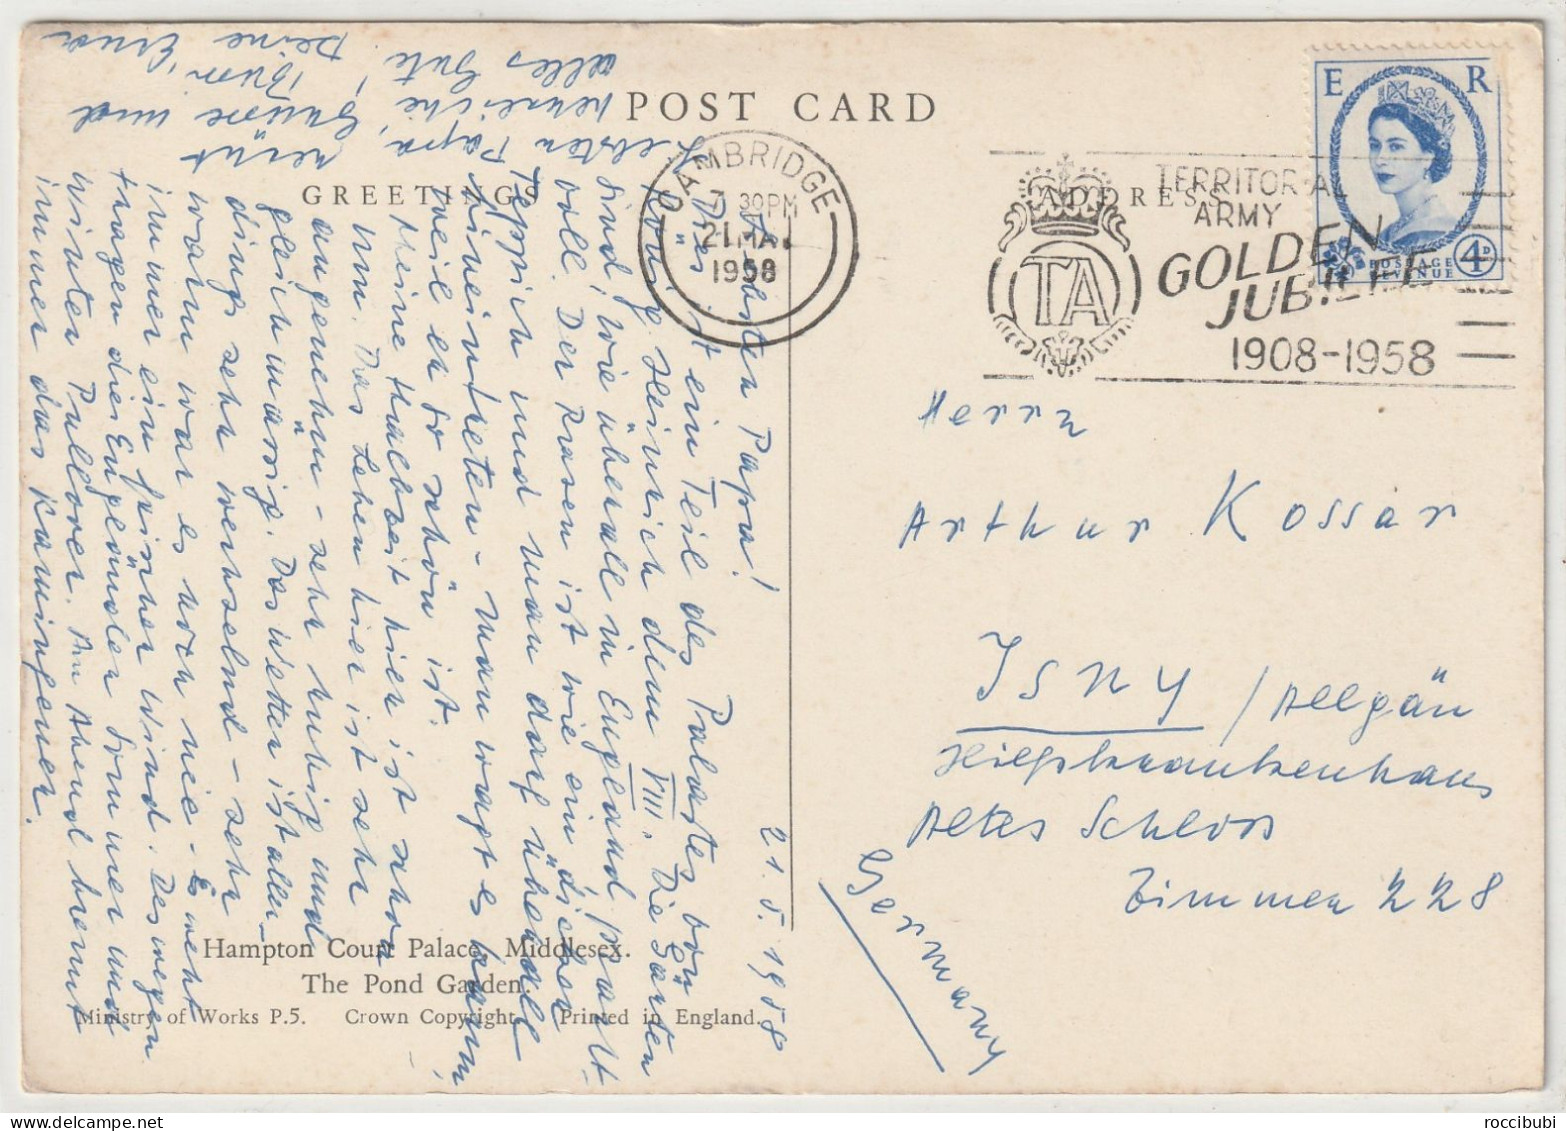 POST CARD
GREETINGS
ADDRESS
CAMBRIDGE
7. 30PM
21 MA
1958
TERRITORIAL
ARMY
GOLDEN
JUBILEE
1908-1958
TA
E R
POSTAGE
REVENUE
4D
21.5.1958
Liebster Papa!
Dies ist ein Teil des Palastes von
König Heinrich dem VIII. Die Gärten
sind, wie überall in England, pracht-
voll. Der Rasen ist wie ein dicker
Teppich und man darf überall
hineintreten - man wagt es kaum,
weil er so schön ist.
Meine Halbzeit hier ist schon
um. Das Leben hier ist sehr
angenehm - sehr ruhig und
gleichmässig. Das Wetter ist aller-
dings sehr wechselnd - sehr
warm war es noch nie - Es weht
immer ein frischer Wind. Deswegen
tragen die Engländer Sommer und
Winter Pullover. Am Abend brennt
immer das Kaminfeuer.
Liebster Papa,
herzliche
alles Gute
Grüsse und
Bussi
Deine Erika
Herrn
Arthur Kossar
ISNY / Allgäu
Hilfskrankenhaus
Altes Schloss
Zimmer 228
Germany
Hampton Court Palace, Middlesex.
The Pond Garden.
Ministry of Works P.5. Crown Copyright. Printed in England.
roccibubi